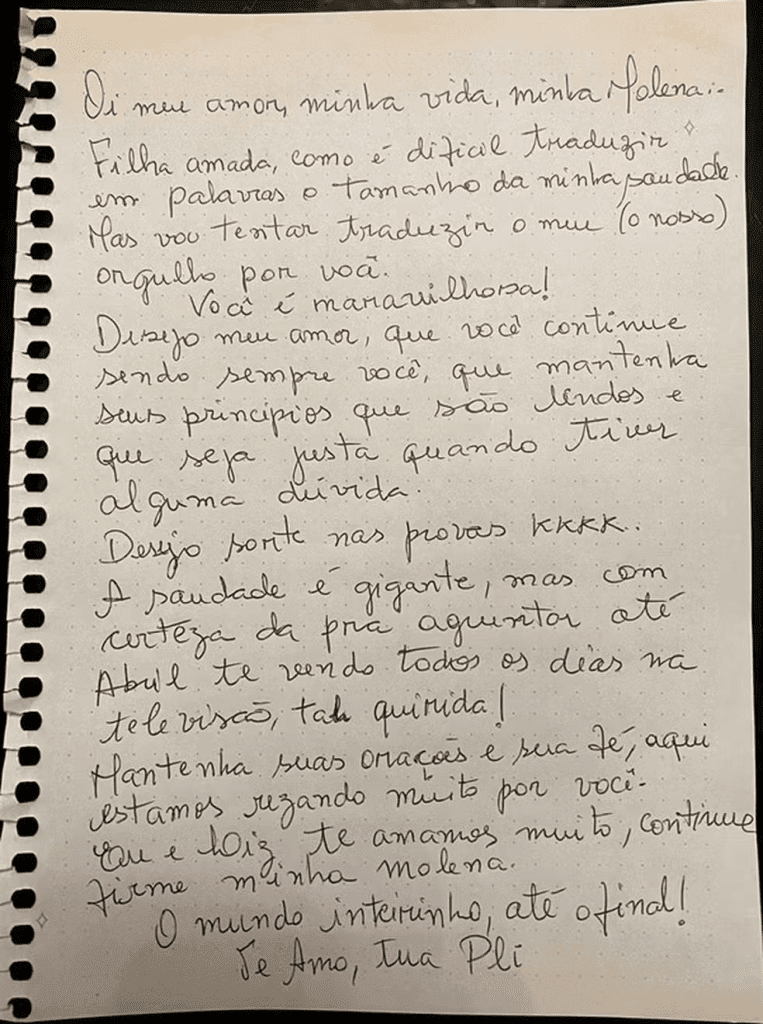 Oi meu amor, minha vida, minha Molena:.
Filha amada, como é dificil traduzir
em palavras o tamanho da minha saudade.
Mas vou tentar traduzir o meu (o nosso)
orgulho por você.
Você é maravilhosa!
Desejo meu amor, que você continue
sendo sempre você, que mantenha
seus princípios que são lindos e
que seja justa quando tiver
alguma dúvida.
Desejo sorte nas provas KKKK..
A saudade é gigante, mas com
certeza da pra aguentar até
Abril te vendo todos os dias na
televisão, tah querida!
Mantenha suas orações e sua fé, aqui
estamos rezando muito por você.
Eu e Wiz te amamos muito, continue
firme minha molena.
O mundo inteirinho, até o final!
Te Amo, tua Pli